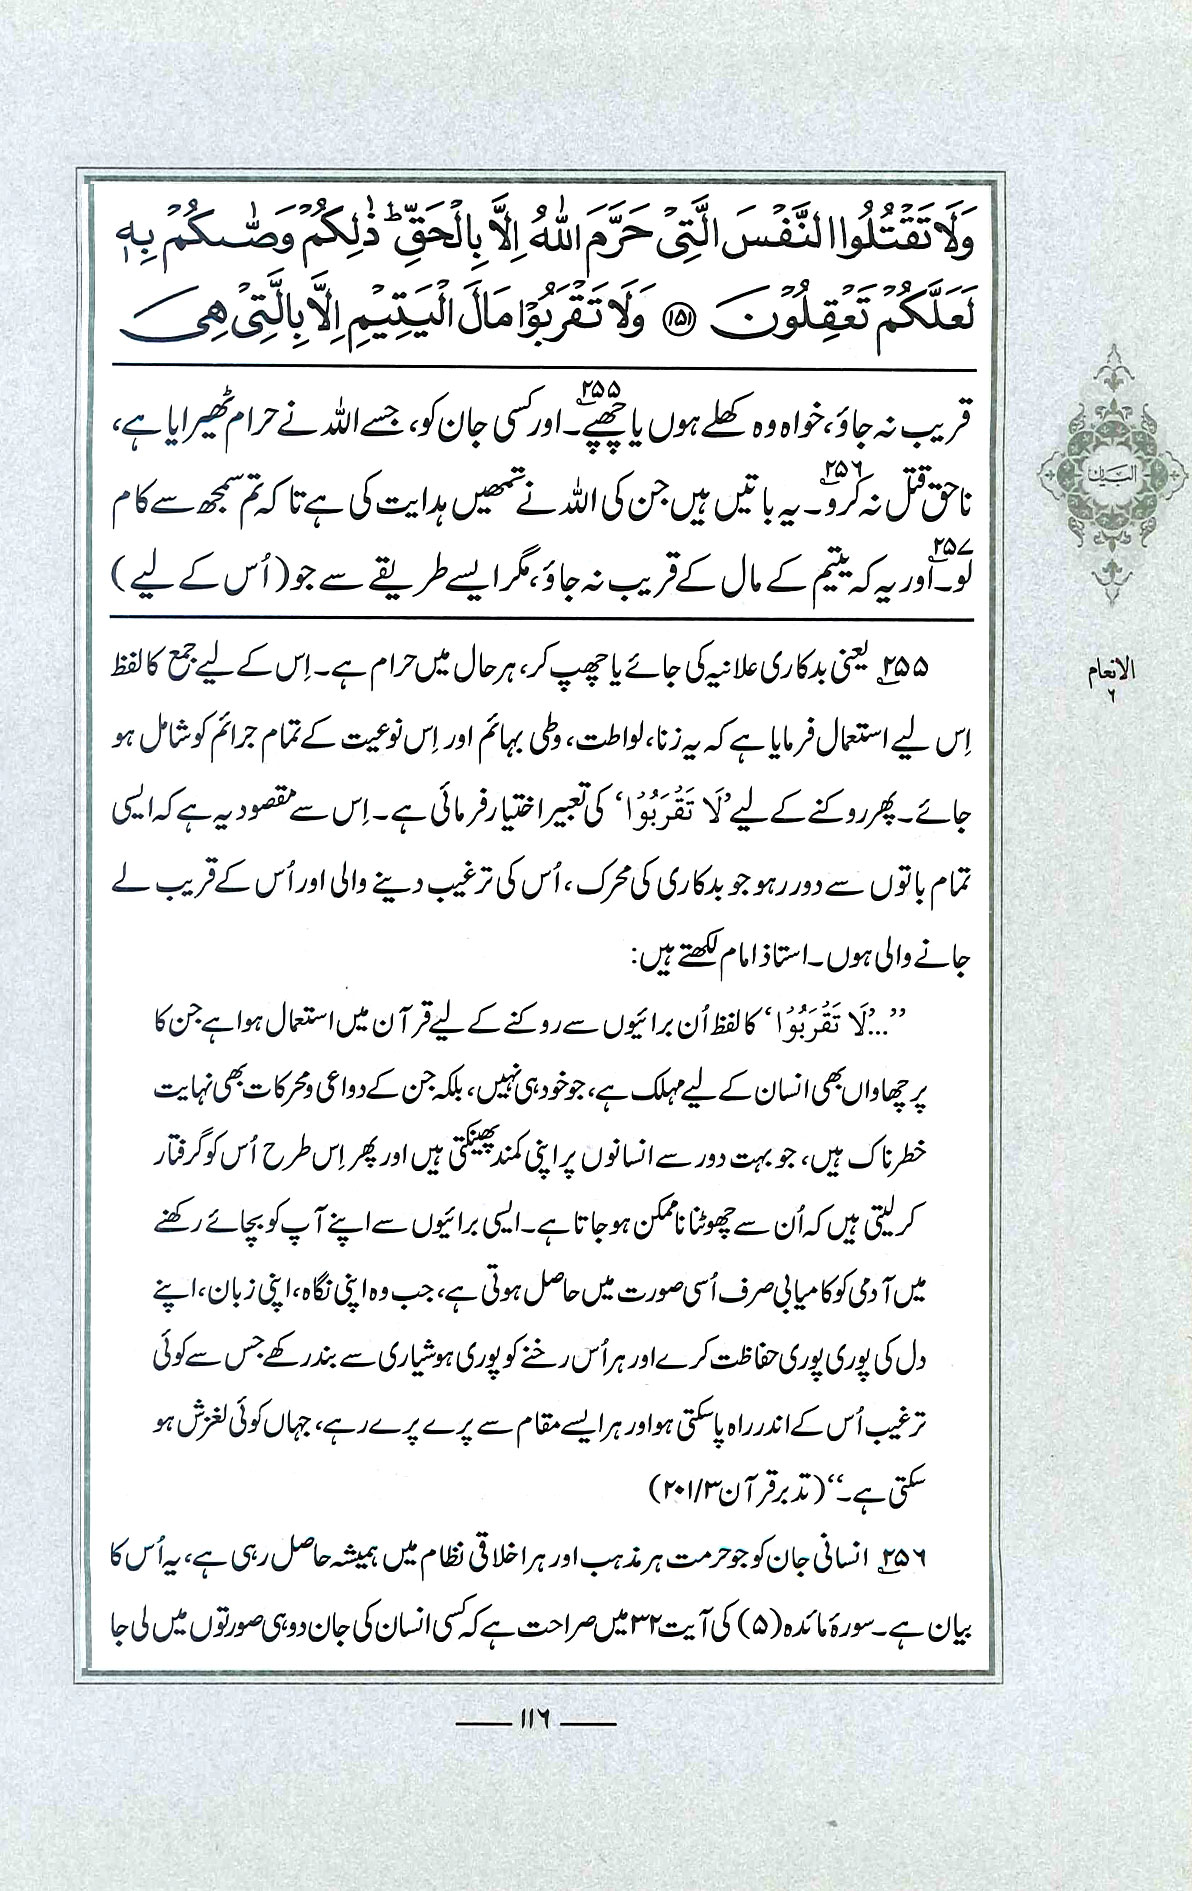 وَلَا تَقْتُلُوا النَّفْسَ الَّتِیْ حَرَّمَ اللّٰهُ اِلَّا بِالْحَقِّ ؕ ذٰلِكُمْ وَصّٰىكُمْ بِهٖ
لَعَلَّكُمْ تَعْقِلُوْنَ ﴿۱۵۱﴾ وَلَا تَقْرَبُوْا مَالَ الْیَتِیْمِ اِلَّا بِالَّتِیْ هِیَ
قریب نہ جاؤ، خواہ وہ کھلے ہوں یا چھپے۲۵۵۔ اور کسی جان کو، جسے اللہ نے حرام ٹھیرایا ہے،
ناحق قتل نہ کرو۲۵۶۔ یہ باتیں ہیں جن کی اللہ نے تمھیں ہدایت کی ہے تاکہ تم سمجھ سے کام
لو۔۲۵۷ اور یہ کہ یتیم کے مال کے قریب نہ جاؤ، مگر ایسے طریقے سے جو (اُس کے لیے)
۲۵۵ یعنی بدکاری علانیہ کی جائے یا چھپ کر، ہر حال میں حرام ہے۔ اِس کے لیے جمع کا لفظ
اِس لیے استعمال فرمایا ہے کہ یہ زنا، لواطت، وطی بہائم اور اِس نوعیت کے تمام جرائم کو شامل ہو
جائے۔ پھر روکنے کے لیے ’لَا تَقْرَبُوْا‘ کی تعبیر اختیار فرمائی ہے۔ اِس سے مقصود یہ ہے کہ ایسی
تمام باتوں سے دور رہو جو بدکاری کی محرک، اُس کی ترغیب دینے والی اور اُس کے قریب لے
جانے والی ہوں۔ استاذ امام لکھتے ہیں:
’’...’لَا تَقْرَبُوْا‘ کا لفظ اُن برائیوں سے روکنے کے لیے قرآن میں استعمال ہوا ہے جن کا
پرچھاواں بھی انسان کے لیے مہلک ہے، جو خود ہی نہیں، بلکہ جن کے دواعی و محرکات بھی نہایت
خطرناک ہیں، جو بہت دور سے انسانوں پر اپنی کمند پھینکتی ہیں اور پھر اِس طرح اُس کو گرفتار
کر لیتی ہیں کہ اُن سے چھوٹنا ناممکن ہو جاتا ہے۔ ایسی برائیوں سے اپنے آپ کو بچائے رکھنے
میں آدمی کو کامیابی صرف اُسی صورت میں حاصل ہوتی ہے، جب وہ اپنی نگاہ، اپنی زبان، اپنے
دل کی پوری پوری حفاظت کرے اور ہر اُس رخنے کو پوری ہوشیاری سے بند رکھے جس سے کوئی
ترغیب اُس کے اندر راہ پا سکتی ہو اور ہر ایسے مقام سے پرے پرے رہے، جہاں کوئی لغزش ہو
سکتی ہے۔‘‘ (تدبر قرآن ۳/۲۰۱)
۲۵۶ انسانی جان کو جو حرمت ہر مذہب اور ہر اخلاقی نظام میں ہمیشہ حاصل رہی ہے، یہ اُس کا
بیان ہے۔ سورۂ مائدہ (۵) کی آیت ۳۲ میں صراحت ہے کہ کسی انسان کی جان دو ہی صورتوں میں لی جا
البیان
الانعام
۶
۱۱۶